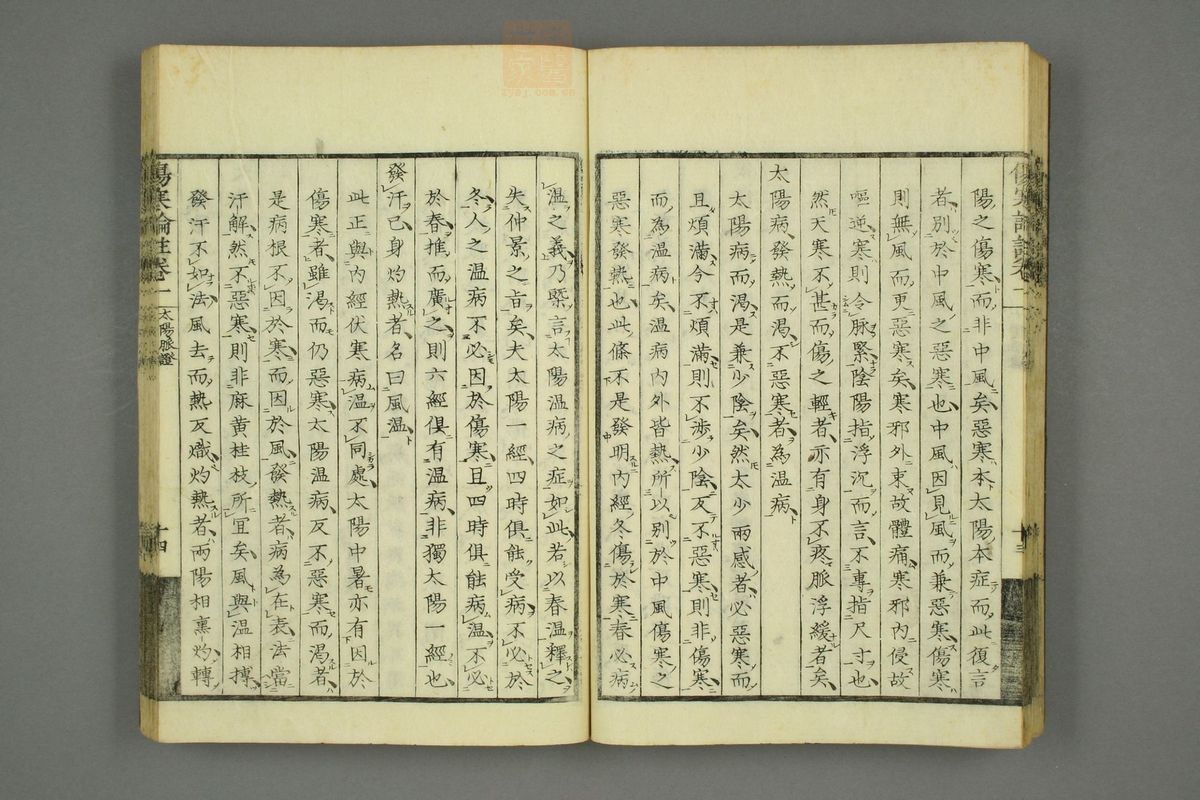 陽之傷寒而非中風矣惡寒本太陽本症而此復言
者別於中風之惡寒也中風因見風而兼惡寒傷寒
則無風而更惡寒矣寒邪外束故體痛寒邪內侵故
嘔逆寒則令脈緊陰陽指浮沉而言不專指尺寸也
然天寒不甚而傷之輕者亦有身不疼脈浮緩者矣
太陽病發熱而渴不惡寒者為溫病
太陽病而渴是兼少陰矣然太少兩感者必惡寒而
且煩滿今不煩滿則不涉少陰反不惡寒則非傷寒
而為溫病矣溫病內外皆熱所以別於中風傷寒之
惡寒發熱也此條不是發明內經冬傷於寒春必病
溫之義乃槩言太陽溫病之症如此若以春溫釋之
失仲景之旨矣夫太陽一經四時俱能受病不必於
冬人之溫病不必因於傷寒且四時俱能病溫不必
於春推而廣之則六經俱有溫病非獨太陽一經也
發汗已身灼熱者名曰風溫
此正與內經伏寒病溫不同處太陽中暑亦有因於
傷寒者雖渴而仍惡寒太陽溫病反不惡寒而渴者
是病根不因於寒而因於風發熱者病為在表法當
汗解然不惡寒則非麻黃桂枝所宜矣風與溫相搏
發汗不如法風去而熱反熾灼熱者兩陽相熏灼轉
傷寒論註卷一
太陽脈證
十四